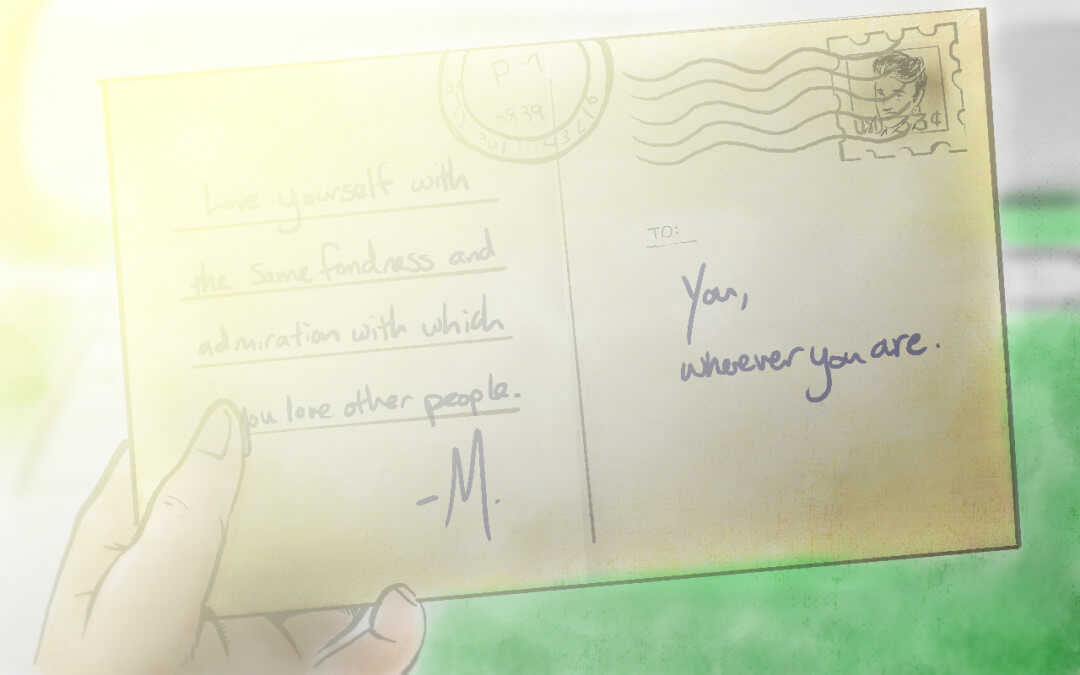 PM
6839
USA 33¢
Love yourself with
the same fondness and
admiration with which
you love other people.
-M.
TO:
You,
wherever you are.